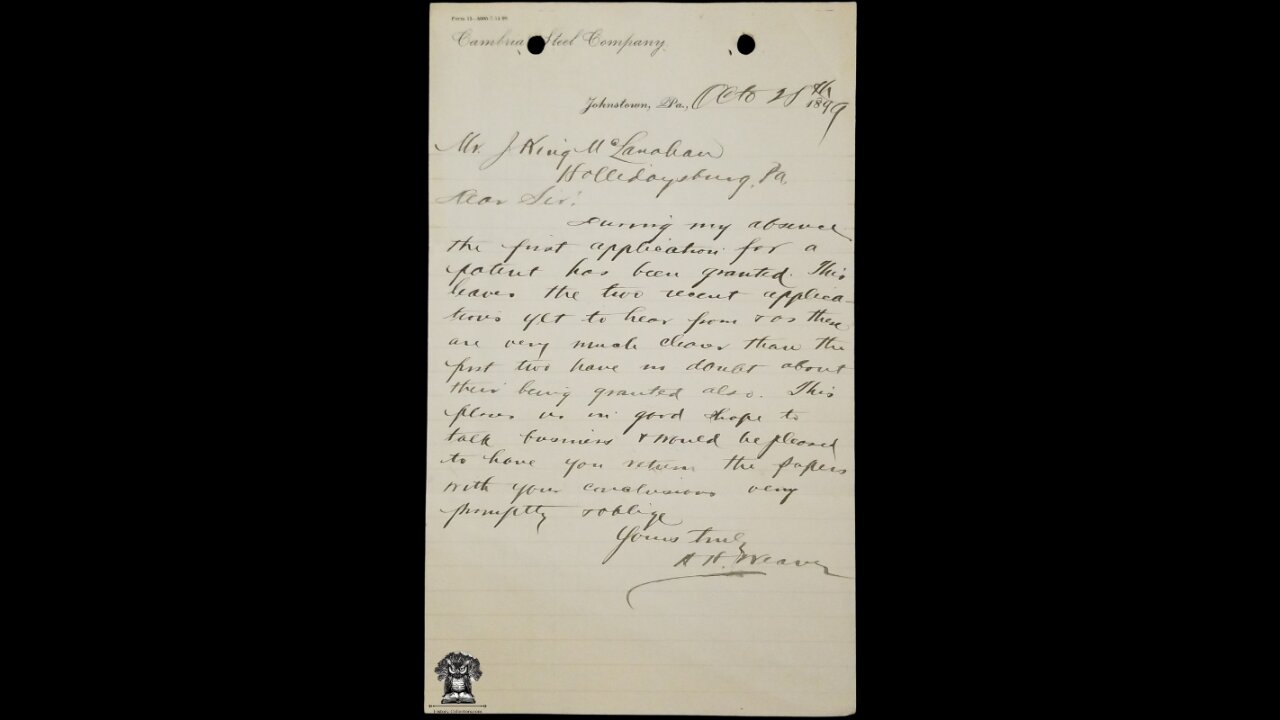 Cambria Steel Company.
Johnstown, Pa., Octo 28th 1899
Mr. J King McLanahan
Hollidaysburg, Pa.
Dear Sir:
During my absence
the first application for a
patent has been granted. This
leaves the two recent applica-
tions yet to hear from & as these
are very much clearer than the
first two have no doubt about
their being granted also. This
places us in good shape to
talk business & would be pleased
to have you return the papers
with your conclusions very
promptly & oblige
Yours truly
H. Weaver